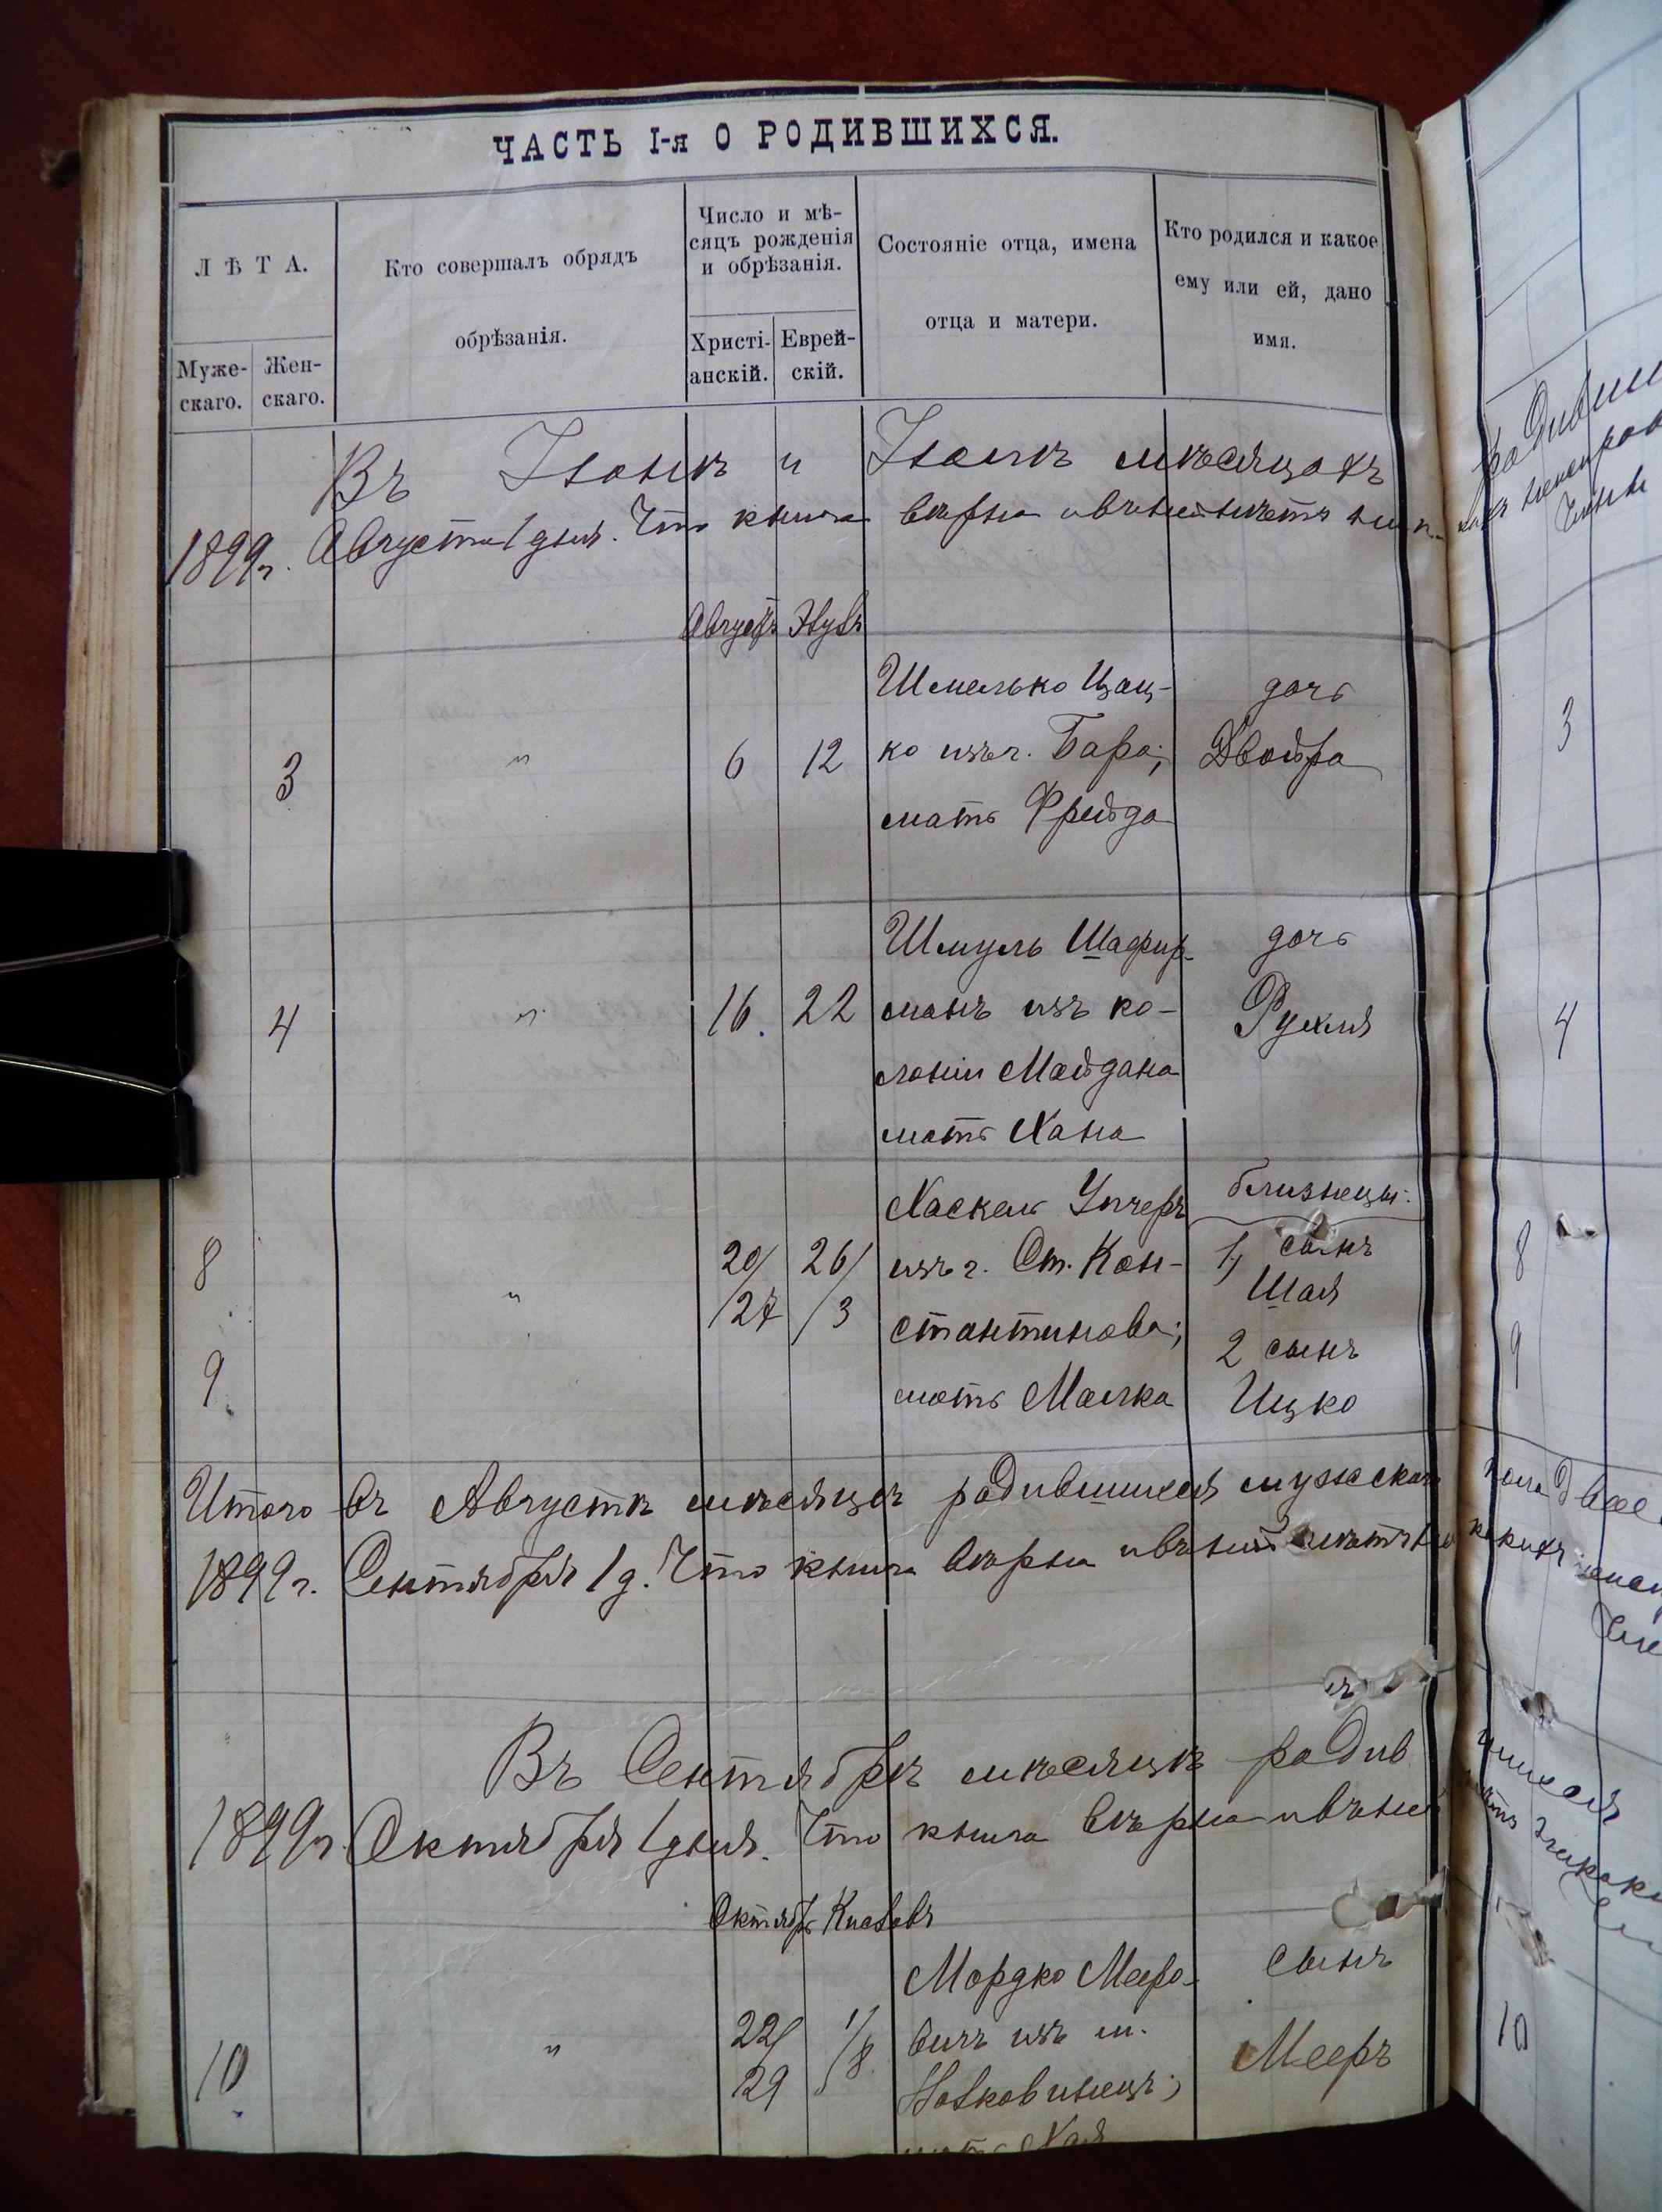 ЧАСТЬ I-я О РОДИВШИХСЯ.
ЛѢТА.
Муже-
скаго.
Жен-
скаго.
Кто совершалъ обрядъ
обрѣзанія.
Число и мѣ-
сяцъ рожденія
и обрѣзанія.
Христі-
анскій.
Еврей-
скій.
Состояніе отца, имена
отца и матери.
Кто родился и какое
ему или ей, дано
имя.
Въ Іюнѣ и Іюлѣ мѣсяцахъ
1899г. Августа 1 дня. Что книга вѣрна и въ ней нѣтъ
Августъ
3 " 6 12
Шмелько Цац-
ко изъ г. Бара;
мать Фрейда
дочь
Двойра
3
4 " 16. 22
Шмуль Шафир-
манъ изъ ко-
лоніи Майдана
мать Хана
дочь
Рухля
4
8
9
"
20/
/27
26/
/3
Хаскель
изъ г. Ст. Кон-
стантинова;
мать Малка
близнецы:
1, сынъ
Шая
2 сынъ
Ицко
8
9
Итого въ Августѣ мѣсяцѣ родившихся мужскаго
1899 г. Сентября 1 д. Что книга вѣрна и въ ней нѣтъ
Въ Сентябрѣ мѣсяцѣ родив
шихся
1899г. Октября 1 дня. Что книга вѣрна и въ ней
Октябрь
10 "
22/
29
1/
/8
Мордко Меро-
вичъ изъ м.
мать Хая
сынъ
Мееръ
10